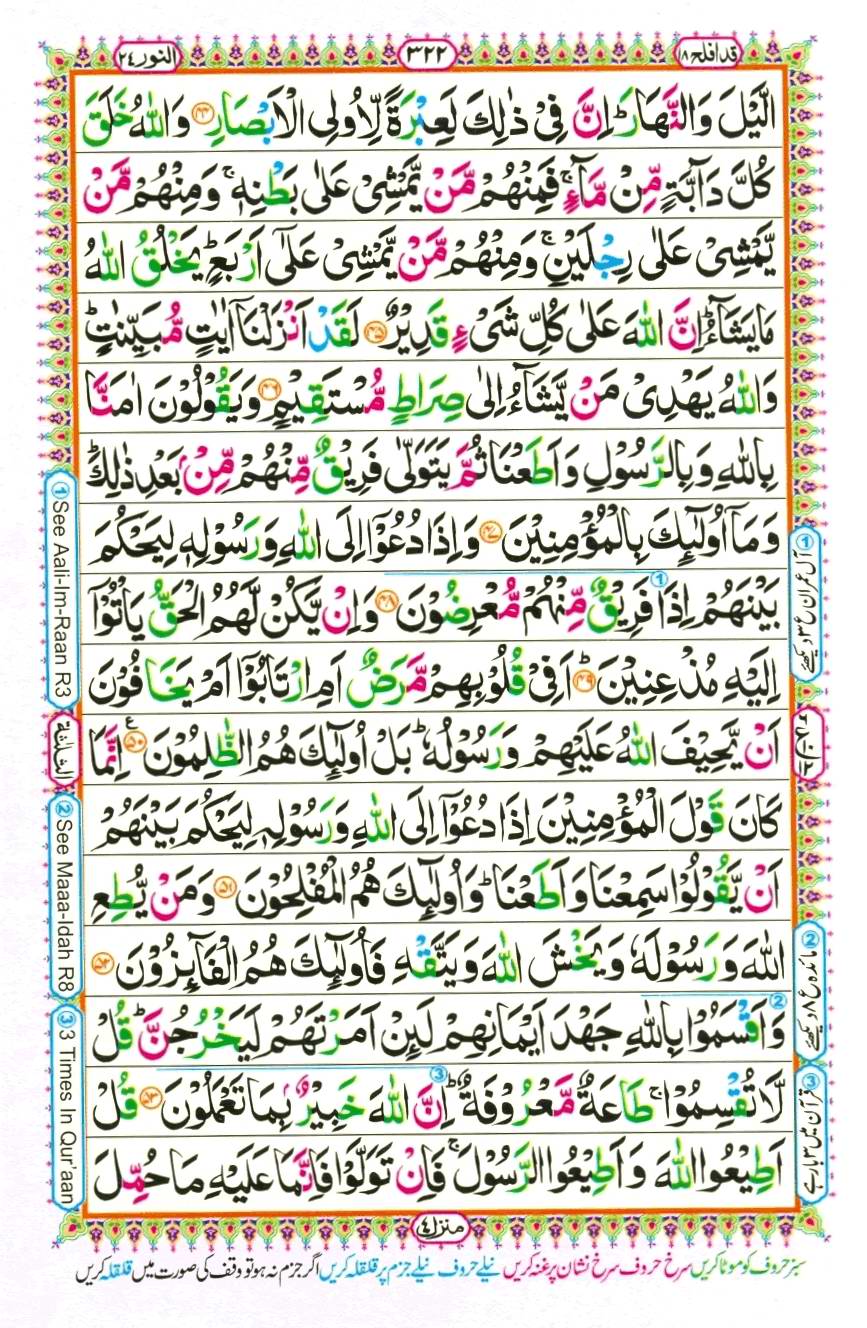 قد افلح ۱۸
۳۲۲
النور ۲۴
الَّيْلَ وَالنَّهَارَ ؕ اِنَّ فِىْ ذٰلِكَ لَعِبْرَةً لِّاُولِى الْاَبْصَارِ ۴۴ وَاللّٰهُ خَلَقَ
كُلَّ دَآبَّةٍ مِّنْ مَّآءٍ ۚ فَمِنْهُمْ مَّنْ يَّمْشِىْ عَلٰى بَطْنِهٖ ۚ وَمِنْهُمْ مَّنْ
يَّمْشِىْ عَلٰى رِجْلَيْنِ ۚ وَمِنْهُمْ مَّنْ يَّمْشِىْ عَلٰٓى اَرْبَعٍ ؕ يَخْلُقُ اللّٰهُ
مَا يَشَآءُ ؕ اِنَّ اللّٰهَ عَلٰى كُلِّ شَىْءٍ قَدِيْرٌ ۴۵ لَقَدْ اَنْزَلْنَاۤ اٰيٰتٍ مُّبَيِّنٰتٍ ؕ
وَاللّٰهُ يَهْدِىْ مَنْ يَّشَآءُ اِلٰى صِرَاطٍ مُّسْتَقِيْمٍ ۴۶ وَيَقُوْلُوْنَ اٰمَنَّا
بِاللّٰهِ وَبِالرَّسُوْلِ وَاَطَعْنَا ثُمَّ يَتَوَلّٰى فَرِيْقٌ مِّنْهُمْ مِّنْۢ بَعْدِ ذٰلِكَ ؕ
وَمَاۤ اُولٰٓئِكَ بِالْمُؤْمِنِيْنَ ۴۷ وَاِذَا دُعُوْۤا اِلَى اللّٰهِ وَرَسُوْلِهٖ لِيَحْكُمَ
بَيْنَهُمْ اِذَا فَرِيْقٌ مِّنْهُمْ مُّعْرِضُوْنَ ۴۸ وَاِنْ يَّكُنْ لَّهُمُ الْحَقُّ يَاْتُوْۤا
اِلَيْهِ مُذْعِنِيْنَ ۴۹ ؕ اَفِىْ قُلُوْبِهِمْ مَّرَضٌ اَمِ ارْتَابُوْۤا اَمْ يَخَافُوْنَ
اَنْ يَّحِيْفَ اللّٰهُ عَلَيْهِمْ وَرَسُوْلُهٗ ؕ بَلْ اُولٰٓئِكَ هُمُ الظّٰلِمُوْنَ ۵۰ ع اِنَّمَا
كَانَ قَوْلَ الْمُؤْمِنِيْنَ اِذَا دُعُوْۤا اِلَى اللّٰهِ وَرَسُوْلِهٖ لِيَحْكُمَ بَيْنَهُمْ
اَنْ يَّقُوْلُوْا سَمِعْنَا وَاَطَعْنَا ؕ وَاُولٰٓئِكَ هُمُ الْمُفْلِحُوْنَ ۵۱ وَمَنْ يُّطِعِ
اللّٰهَ وَرَسُوْلَهٗ وَيَخْشَ اللّٰهَ وَيَتَّقْهِ فَاُولٰٓئِكَ هُمُ الْفَآئِزُوْنَ ۵۲
وَاَقْسَمُوْا بِاللّٰهِ جَهْدَ اَيْمَانِهِمْ لَئِنْ اَمَرْتَهُمْ لَيَخْرُجُنَّ ؕ قُلْ
لَّا تُقْسِمُوْا ۚ طَاعَةٌ مَّعْرُوْفَةٌ ؕ اِنَّ اللّٰهَ خَبِيْرٌۢ بِمَا تَعْمَلُوْنَ ۵۳ قُلْ
اَطِيْعُوا اللّٰهَ وَاَطِيْعُوا الرَّسُوْلَ ۚ فَاِنْ تَوَلَّوْا فَاِنَّمَا عَلَيْهِ مَا حُمِّلَ
① آل عمران ع ۳ دیکھئے
② مائدہ ع ۸ دیکھئے
③ قرآن میں ۳ بار ہے
① See Aali-Im-Raan R3
الثلٰثة
② See Maaa-Idah R8
③ 3 Times In Qur'aan
منزل ۴
سبز حروف کو موٹا کریں سرخ حروف سرخ نشان پر غنہ کریں نیلے حروف نیلے جزم پر قلقلہ کریں اگر جزم نہ ہو تو وقف کی صورت میں قلقلہ کریں